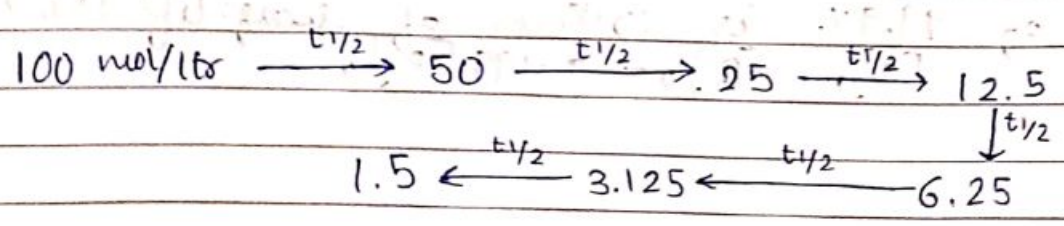 100 mol/ltr t1/2 → 50 t1/2 → 25 t1/2 → 12.5
↓ t1/2
1.5 ← t1/2 3.125 ← t1/2 6.25